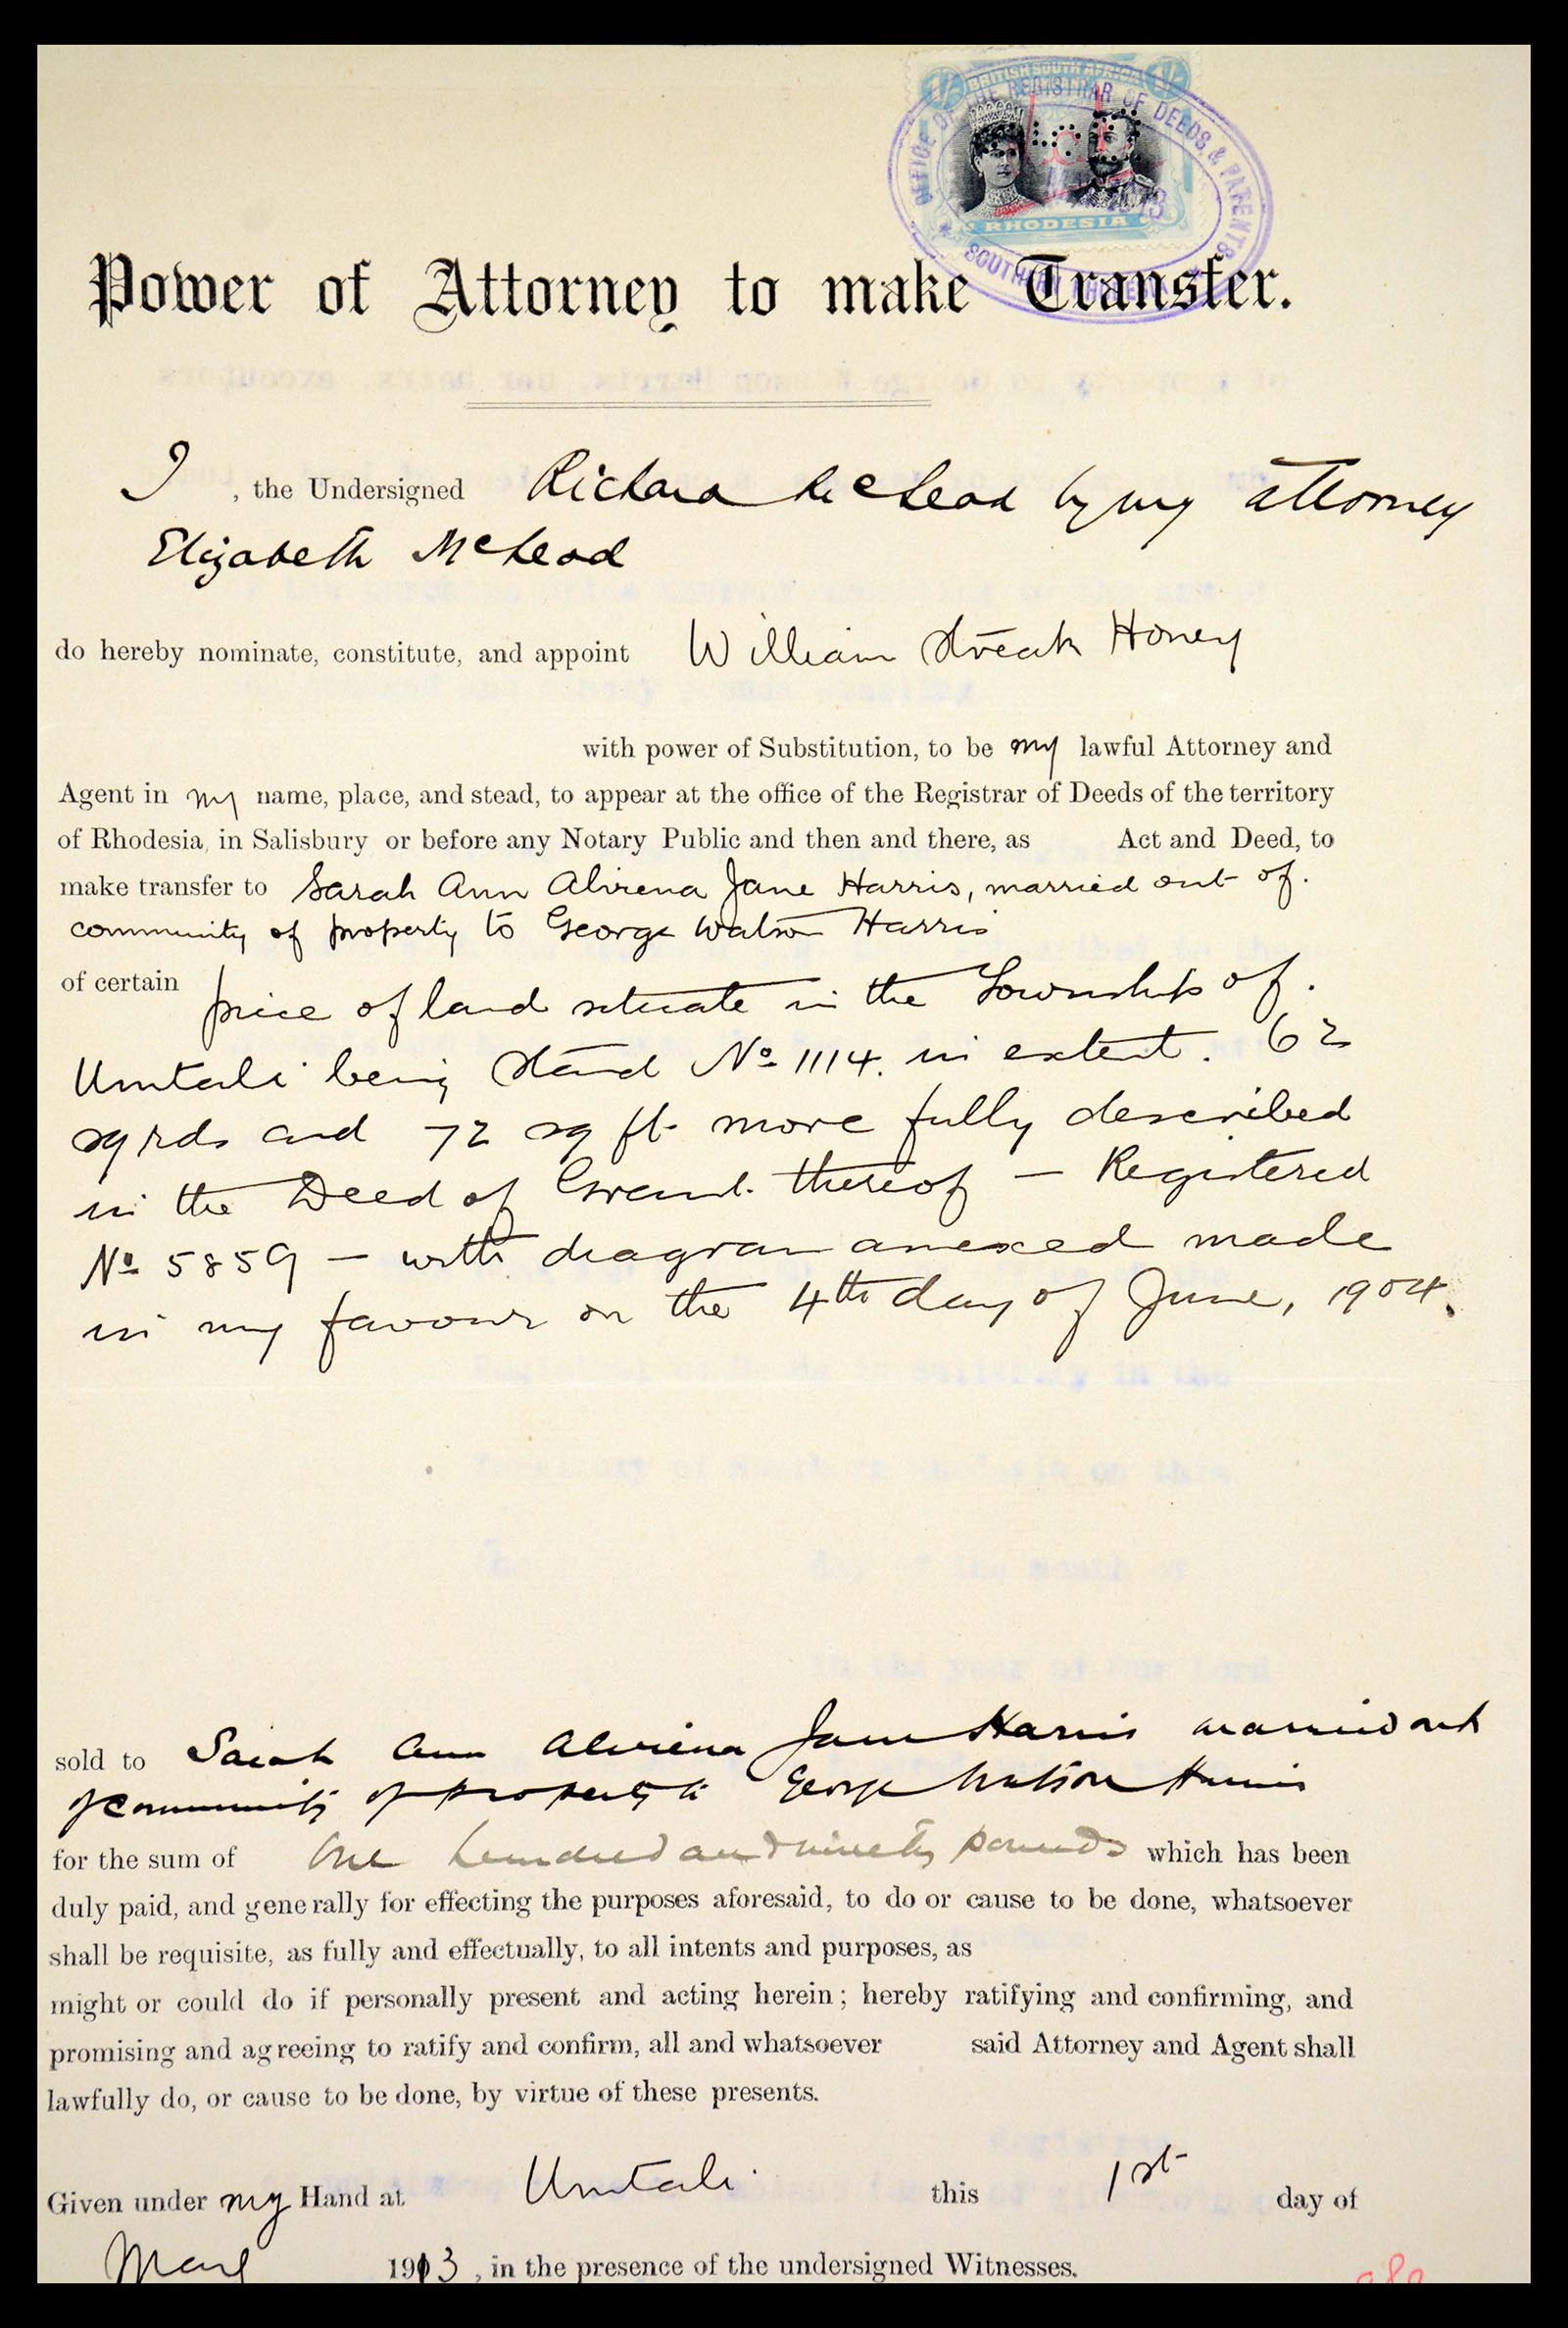 1/- BRITISH SOUTH AFRICA 1/-
COMPANY
RHODESIA
OFFICE OF THE REGISTRAR OF DEEDS & PATENTS
Power of Attorney to make Transfer.
I , the Undersigned Richard McLeod by my attorney
Elizabeth McLeod
do hereby nominate, constitute, and appoint William Streak Honey
with power of Substitution, to be my lawful Attorney and
Agent in my name, place, and stead, to appear at the office of the Registrar of Deeds of the territory
of Rhodesia, in Salisbury or before any Notary Public and then and there, as Act and Deed, to
make transfer to Sarah Ann Alvirena Jane Harris, married out of.
community of property to George Watson Harris
of certain piece of land situate in the Township of.
Umtali being Stand No 1114. in extent. 62
sq rds and 72 sq ft more fully described
in the Deed of Grant thereof — Registered
No 5859 — with diagram annexed made
in my favour on the 4th day of June, 1904.
sold to Sarah Ann Alvirena Jane Harris married out
of community of property to George Watson Harris
for the sum of One hundred and ninety pounds which has been
duly paid, and generally for effecting the purposes aforesaid, to do or cause to be done, whatsoever
shall be requisite, as fully and effectually, to all intents and purposes, as
might or could do if personally present and acting herein; hereby ratifying and confirming, and
promising and agreeing to ratify and confirm, all and whatsoever said Attorney and Agent shall
lawfully do, or cause to be done, by virtue of these presents.
Given under my Hand at Umtali this 1st day of
1913, in the presence of the undersigned Witnesses.